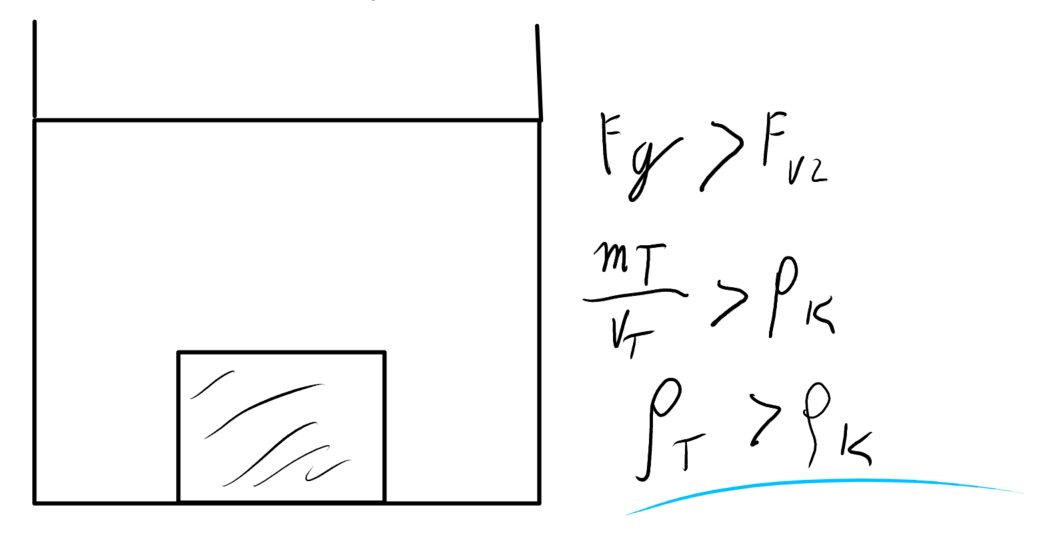 Fg > F_vz
m_T / V_T > ρ_K
ρ_T > ρ_K